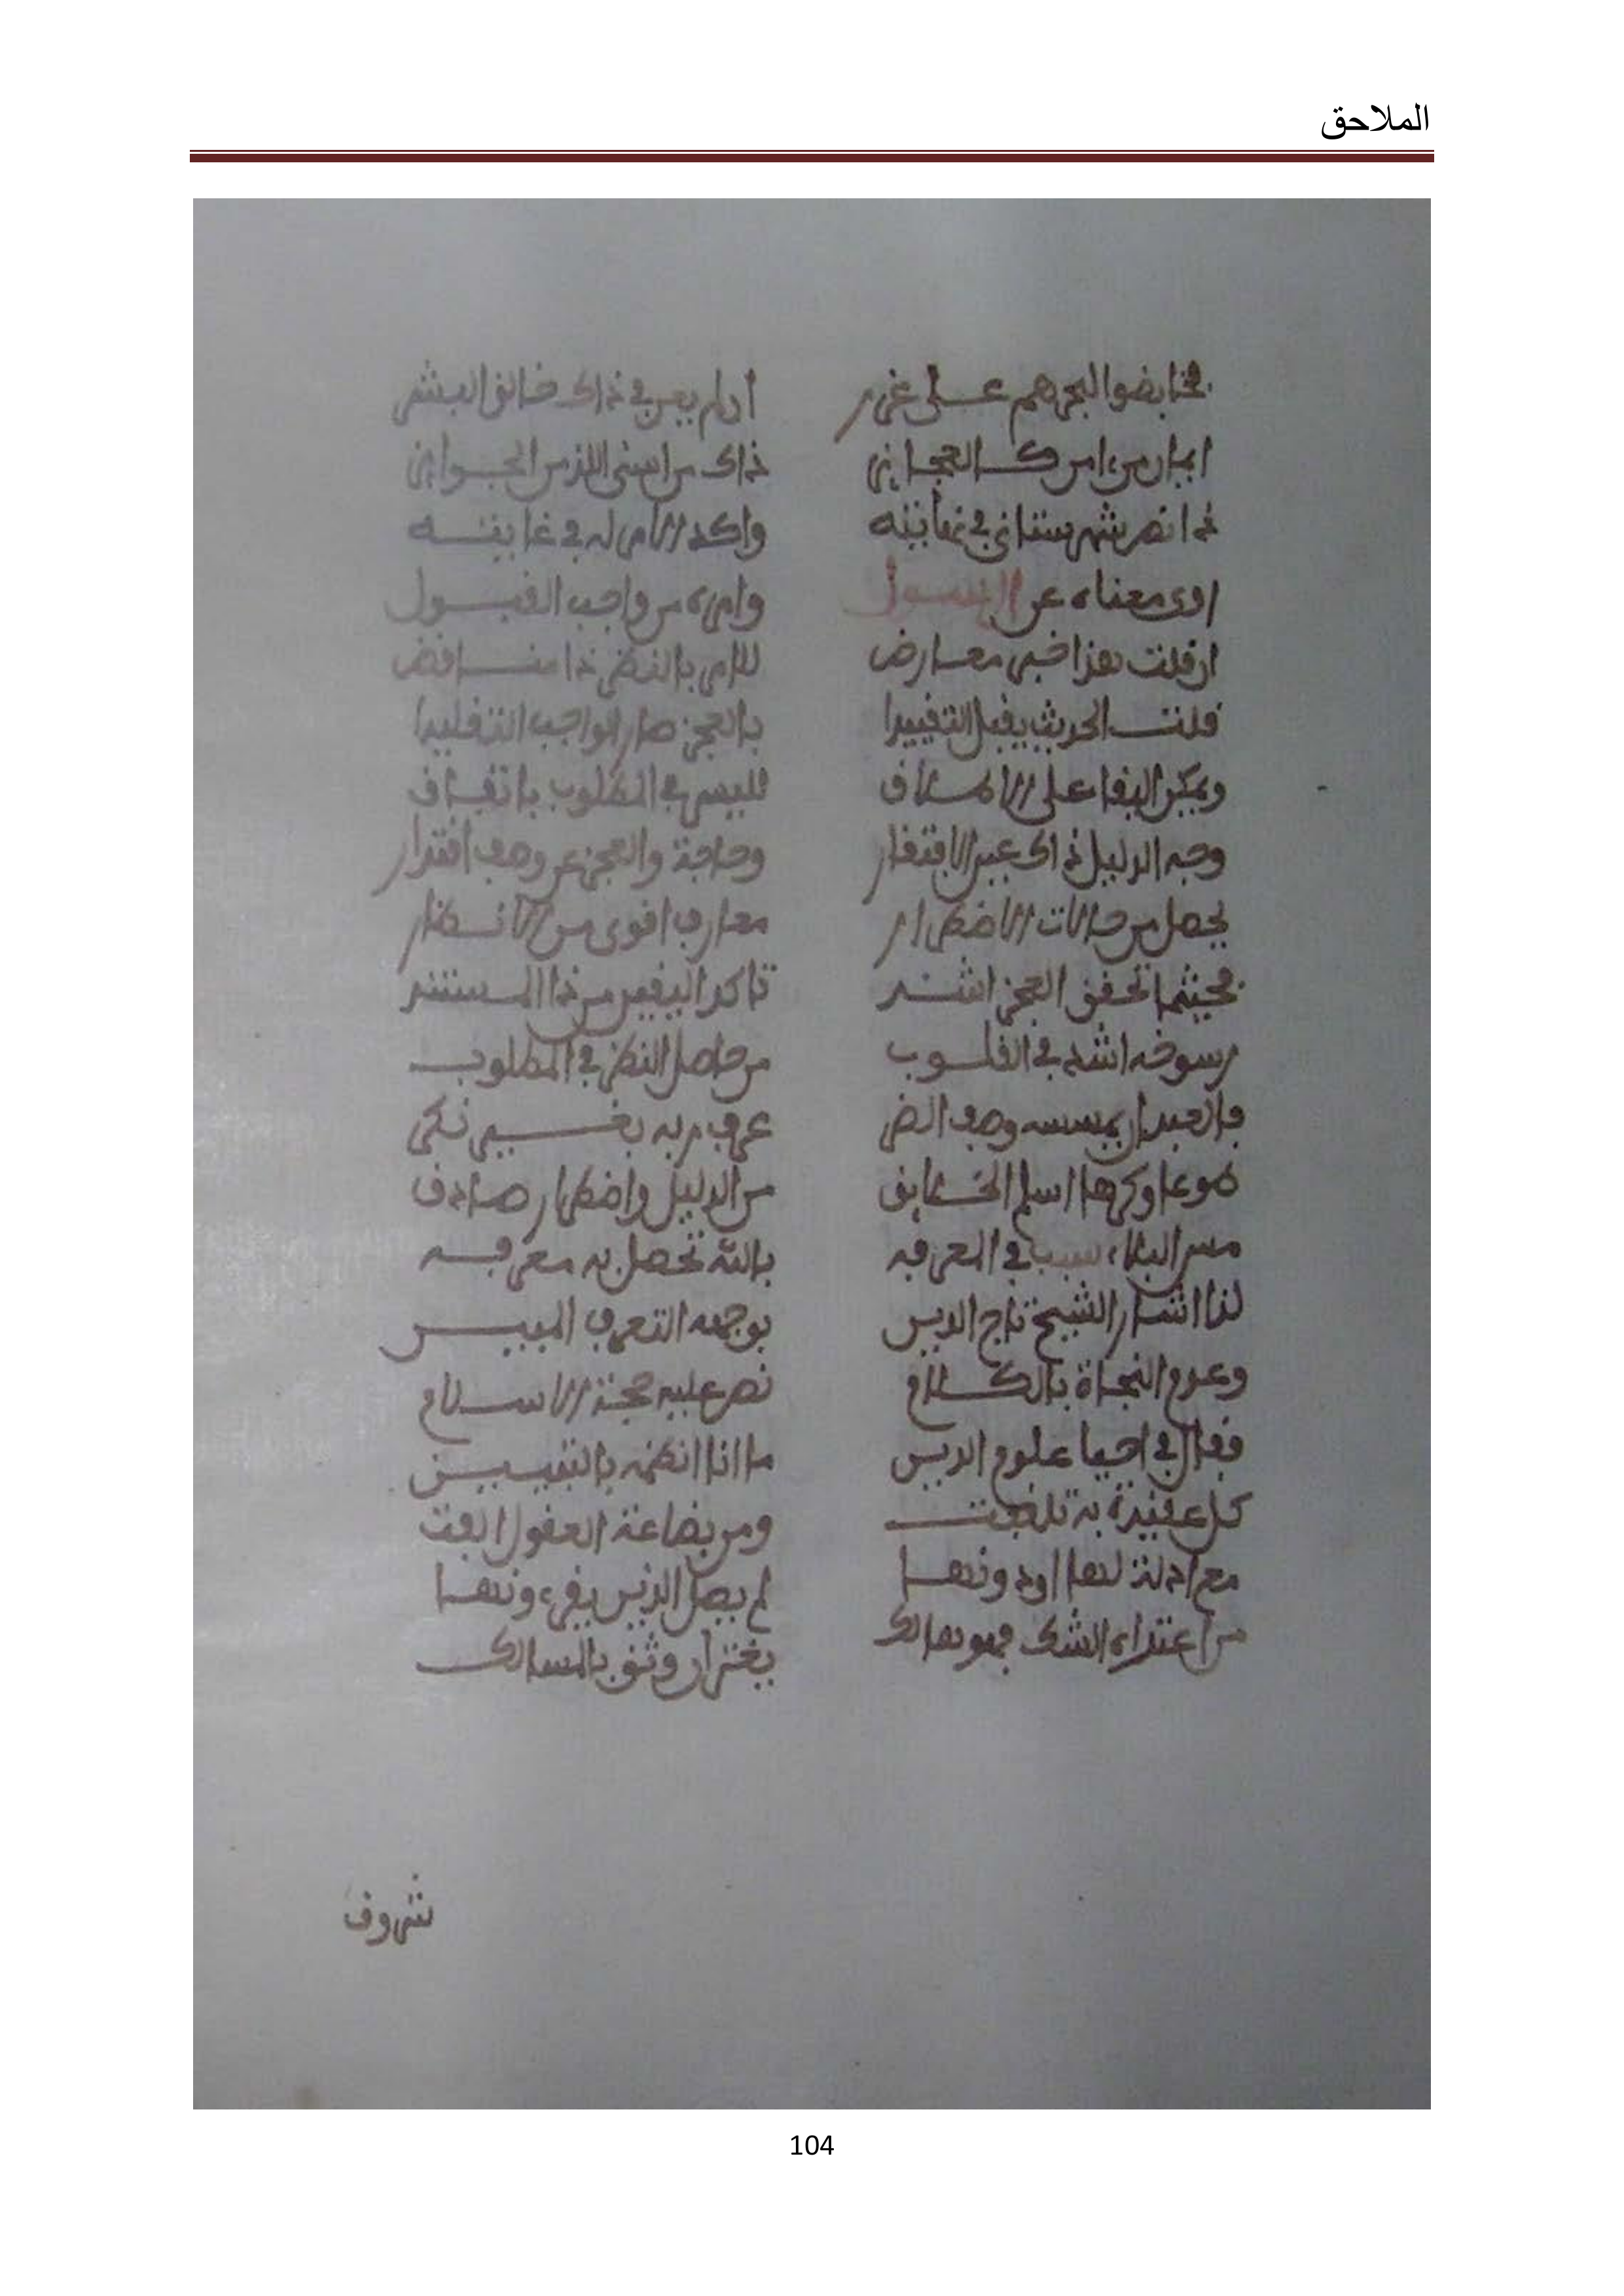 الملاحق
فخايضوا البحر هم على غرر ان لم يعن في ذاك خالق البشر
ايمان من امن كالعجايز ذاك من اسنى اللذ من الجوايز
ذا نص شهرستاني في نهايته واكد الامر له في غايته
اوى معناه عن الرسول وامره من واجب القبول
ان قلت هذا خبر معارض للامر بالنظر ذا مناقض
قلت الحديث يقبل التقييدا بالعجز صار الواجب التقليدا
ويمكن البقا على الاطلاق فليس في المطلوب باتفاق
وجه الدليل ذاك عين الافتقار وحاجة والعجز عن وصف اقتدار
يحصل من حالات الاضطرار معارف اقوى من الانظار
فحيثما تحقق العجز اشتد تاكد اليقين من ذا المستند
رسوخه اشد في القلوب من حاصل النظر في المطلوب
فالعبد ان يمسسه وصف الضر عرف ربه بغير نكر
طوعا وكرها اسلم الخلايق من الدليل واضطرار صادف
مس البلاء سبب في المعرفه بالله تحصل به معرفه
لذا اشار الشيخ تاج الدين بوجهه التعرف المبين
وعدم النجاة بالكلام نص عليه حجة الاسلام
فقال في احيا علوم الدين ما انا انظمه بالتبيين
كل عقيدة به تلفت ومن بضاعة العقول الفت
مع ادلة لها اودونها لم يصل الذين يقرءونها
من اعتداه الشك فهو هالك يغتر ان وثق بالمسالك
شروف
104